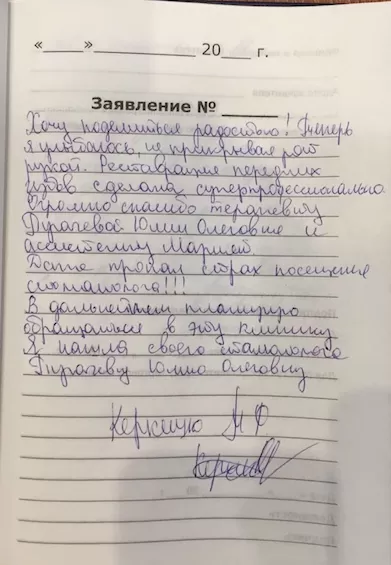 «____»____________ 20___ г.
Заявление № ______
Хочу поделиться радостью! Теперь
я улыбаюсь, не прикрывая рот
рукой. Реставрация передних
зубов сделана суперпрофессионально.
Огромно спасибо терапевту
Юлии Олеговне и
ассистенту Марией.
Даже пропал страх посещения
стоматолога!!!
В дальнейшем планирую
обращаться в эту клинику.
Я нашла своего стоматолога
Юлию Олеговну